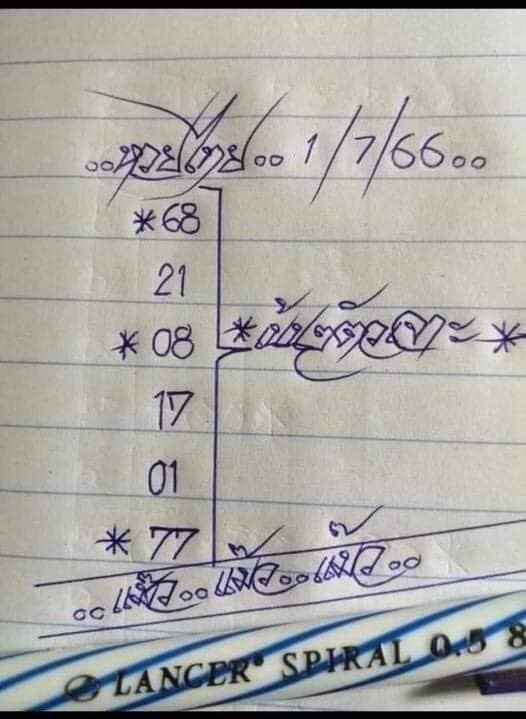 ..หวยไทย.. 1/7/66..
*68
21
*08
17
01
*77
*เน้น2ตัวเจาะ*
..แม้ว..แม้ว..แม้ว..
LANCER® SPIRAL 0.5 8